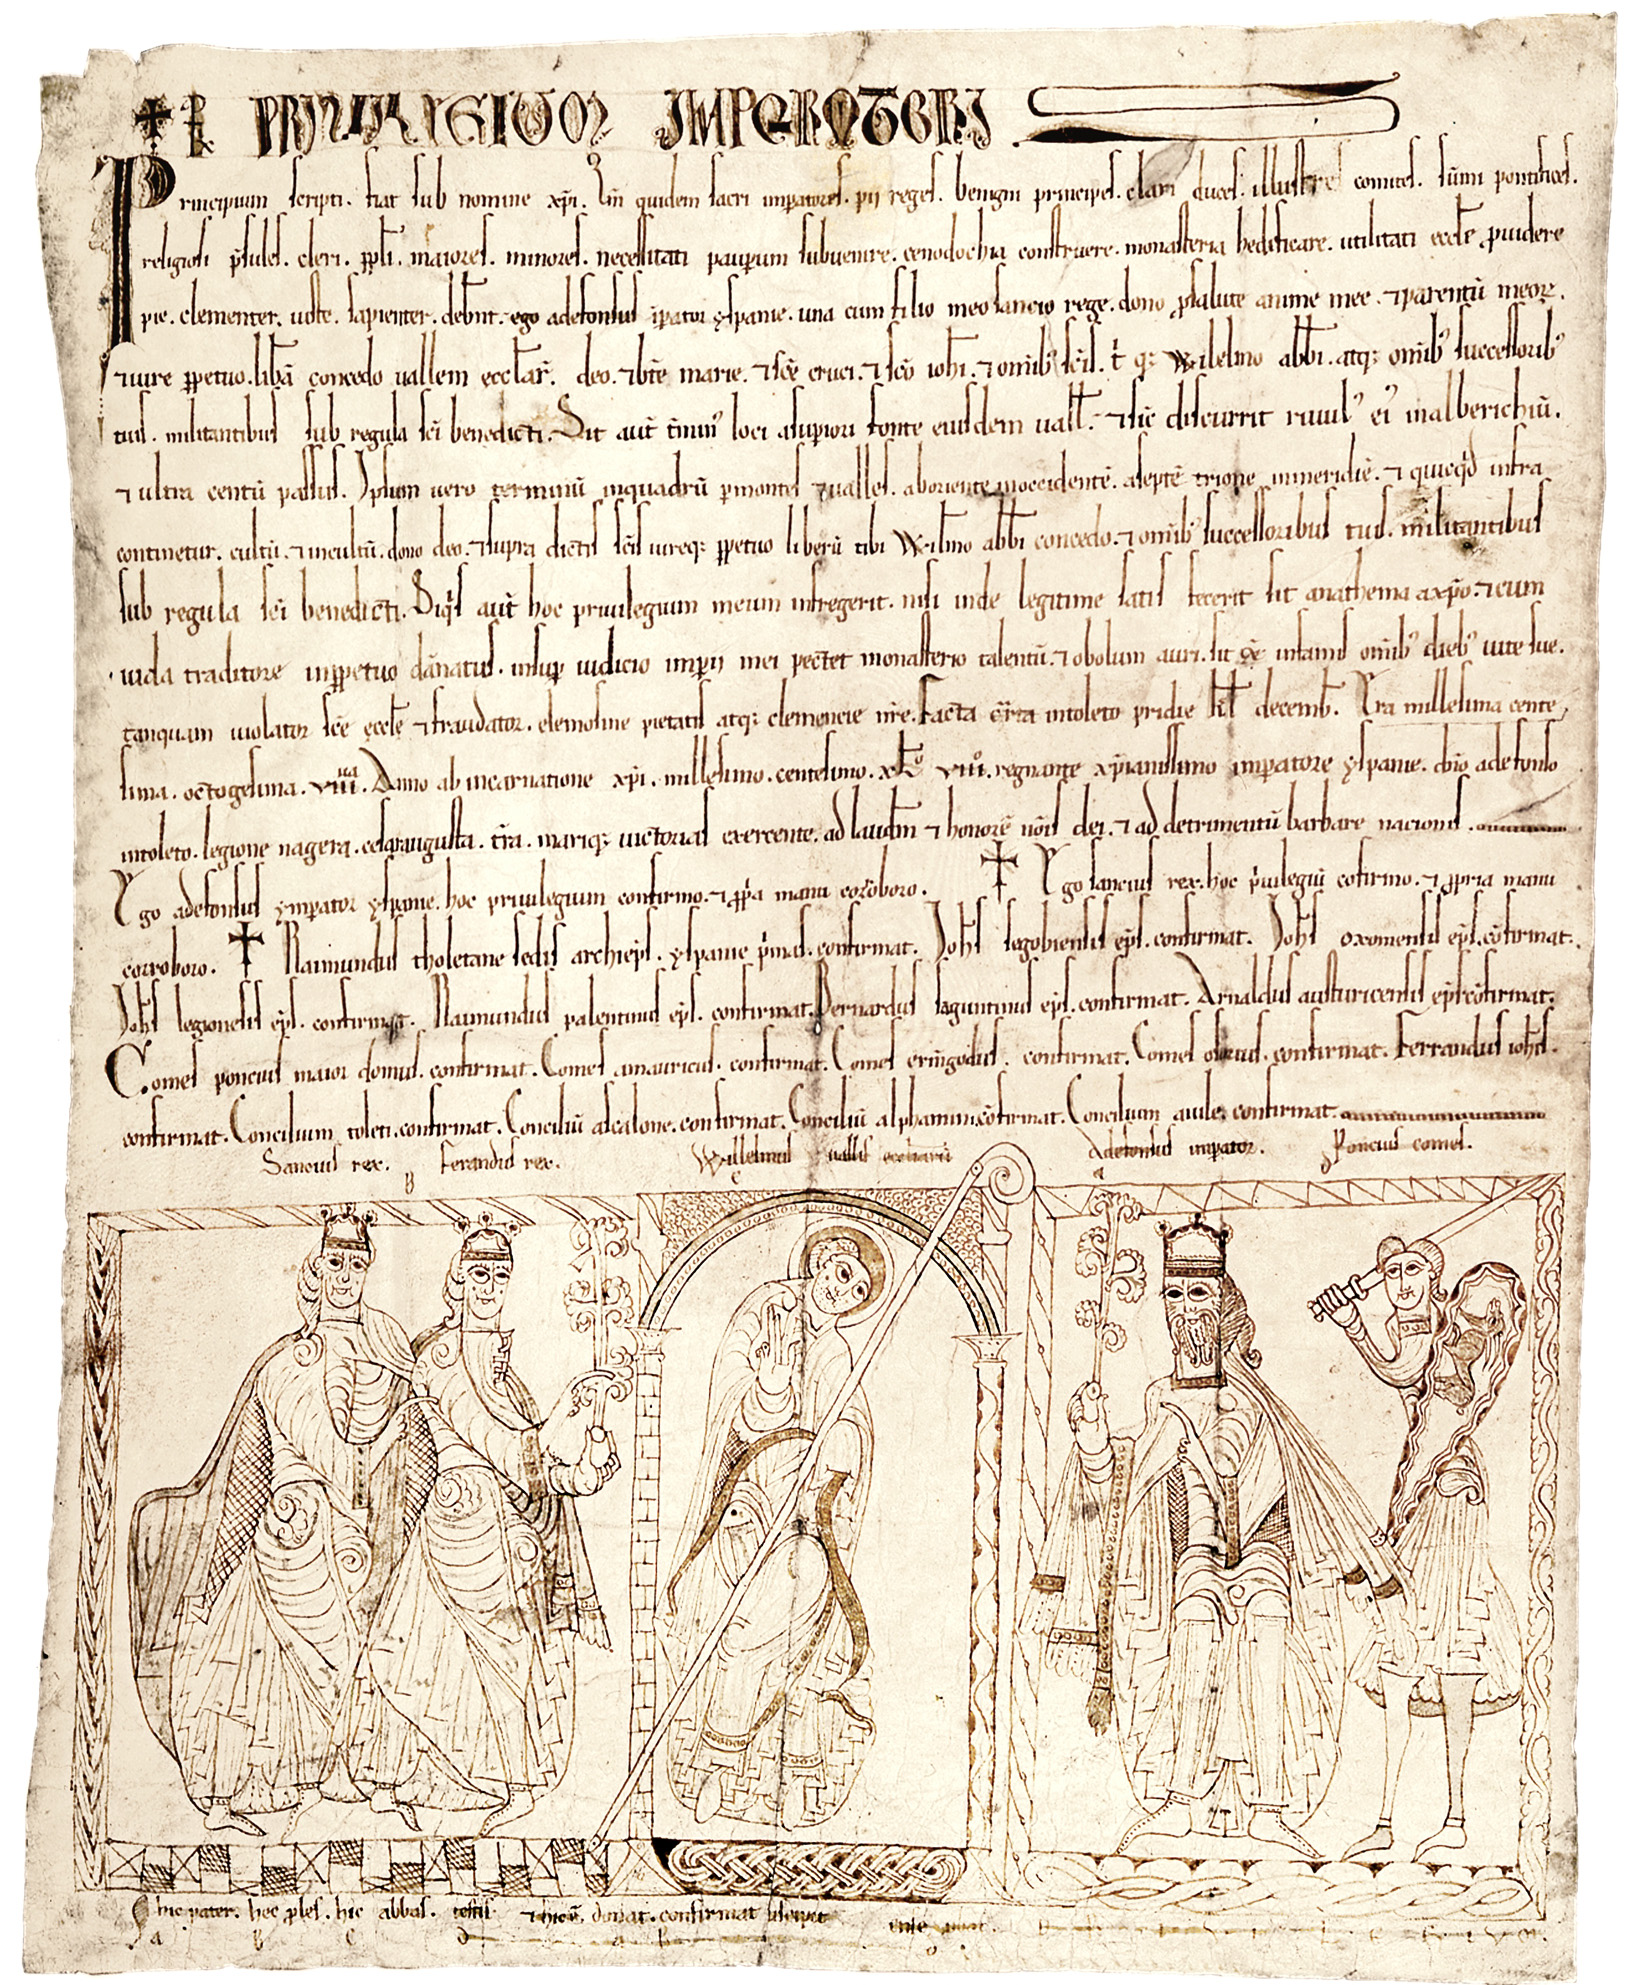 PRIVILEGIUM IMPERATORIS
Principium scripti. fiat sub nomine xp̄i. quidem sacri imperatores. pii reges. benigni principes. clari duces. illustres comites. sūmi pontifices.
religiosi p̄sules. cleri. pp̄li. maiores. minores. necessitati paup̱um subvenire. cenodochia construere. monasteria hedificare. utilitati eccl̄e ꝓuidere
pie. clementer. iuste. sapienter. deb̄nt. ego adefonsus īpator yspanie. una cum filio meo sancio rege. dono ꝓ salute anime mee. ⁊ parentū meoꝝ.
⁊ iure ꝑpetuo. lib̄a concedo uallem eccl̄ar̄. deo. ⁊ bt̄e marie. ⁊ sc̄e cruci. ⁊ sc̄o ioh̄i. ⁊ omīb᾽ sc̄is. t̄ qꝫ Wilelmo abb̄i. atqꝫ omīb᾽ successorib᾽
tuis. militantibus sub regula sc̄i benedicti. Sit aut̄ t̄min᾽ loci a supiori fonte eiusdem uall̄. ⁊ sic̄ discurrit riuul᾽ ei᾽ in alberichiū.
⁊ ultra centū passus. Ipsum uero terminū in quadrū ꝑ montes ⁊ ualles. ab oriente in occidentē. a septētrione in meridiē. ⁊ quicq̄d infra
continetur. cultū. ⁊ incultū. dono deo. ⁊ supra dictis sc̄is iureqꝫ ꝑpetuo liberū tibi Wilmo abb̄i concedo. ⁊ omīb᾽ successoribus tuis. militantibus
sub regula sc̄i benedicti. Siq̄s aut̄ hoc priuilegium meum infregerit. nisi inde legitime satis fecerit sit anathema a xp̄o. ⁊ cum
iuda traditore in ꝑpetuo dānatus. insup̱ iudicio imp̱ii mei pectet monasterio talentū. ⁊ obolum auri. sit infamis omīb᾽ dieb᾽ uite sue.
tanquam uiolator sc̄e eccl̄e ⁊ fraudator. elemosine pietatis atqꝫ clemencie nr̄e. Facta c̄rta in toleto pridie kl̄ decemb̄. Era millesima cente
sima. octogesima. viiiiᵃ. Anno ab incarnatione xp̄i. millesimo. centesimo. xlº viiiº. regnante xp̄ianissimo imperatore yspanie. dn̄o adefonso
in toleto. legione nagera. cesaraugusta. t̄ra. mariqꝫ uictorias exercente. ad laud̄m ⁊ honorē nōis dei. ⁊ ad detrimentū barbare nacionis.
Ego adefonsus ymperator yspanie. hoc priuilegium confirmo. ⁊ ꝓp̄a manu coroboro. ✝ Ego sancius rex. hoc p̄uilegiū cōfirmo. ⁊ ꝓpria manu
corroboro. ✝ Raimundus tholetane sedis archiep̄s. yspanie p̄mas. confirmat. Ioh̄s segobiensis ep̄s. confirmat. Ioh̄s oxomensis ep̄s. cōfirmat.
Ioh̄s legionensis ep̄s. confirmat. Raimundus palentinus ep̄s. confirmat. Bernardus saguntinus ep̄s. confirmat. Arnaldus austuricensis ep̄s cōfirmat.
Comes poncius maior domus. confirmat. Comes amauricus. confirmat. Comes ermēgodus. confirmat. Comes osorius. confirmat. Ferrandus ioh̄s.
confirmat. Concilium toleti. confirmat. Conciliū ascalone. confirmat. Conciliū alphamin. cōfirmat. Concilium auile. confirmat
Sancius rex. Ferandus rex. Willelmus uallis ecclesiarū Adefonsus imperator. Poncius comes.
B C A
hic pater. hec ꝓles. hic abbas. testis ⁊ hic ē. donat. confirmat suscipit
a B C D a B